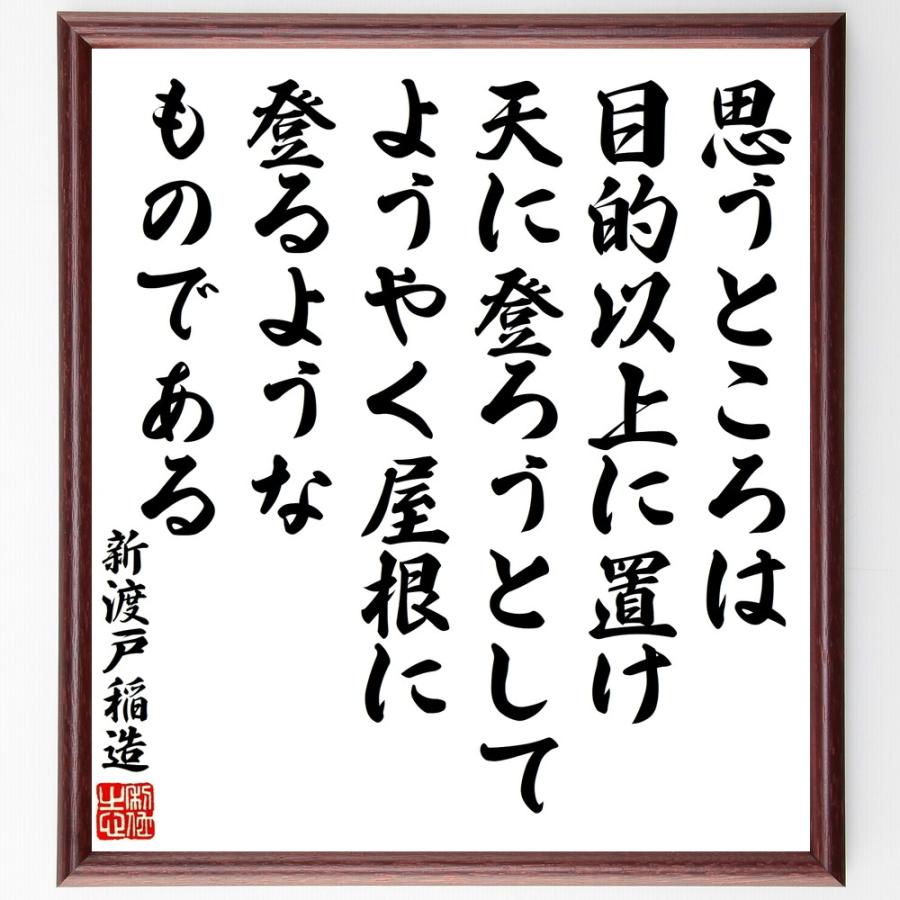 思うところは
目的以上に置け
天に登ろうとして
ようやく屋根に
登るような
ものである
新渡戸稲造